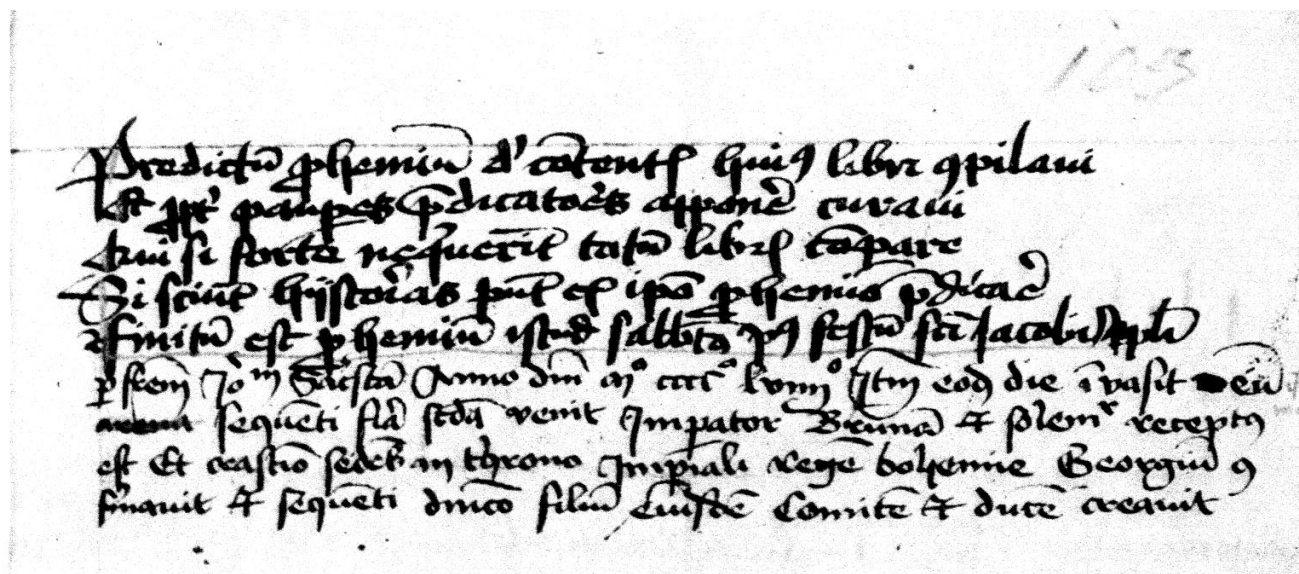 103
Predictū ꝓhemiū d' cōtentꝭ huiꝰ libri ꝯpilavi
Et ꝓpt' pauꝑes p̄dicatores apponē curavi
Qui si forte neqꝰuerīt tātū librū cōpare
Si sciūt hystorias pn̄t ex ipō ꝓhemio p̄dicare
finitū est ꝓhemiū istud sabbato pꝰ festū sc̄i Jacobi Apl̄i
ꝑ frēm Jo Anno dn̄i mͦ ccccͦ lviiiiͦ Itm̄ eodē die eū
sequēti fr̄a sc̄da venit Imperator Brunā et solemr̄ receptꝰ
est Et crastīo sedēs in throno Imꝑiali regē bohemie Georgiū ꝯ
firmavit et sequēti dn̄ico filiū Eiusdē Comitē et ducē creavit